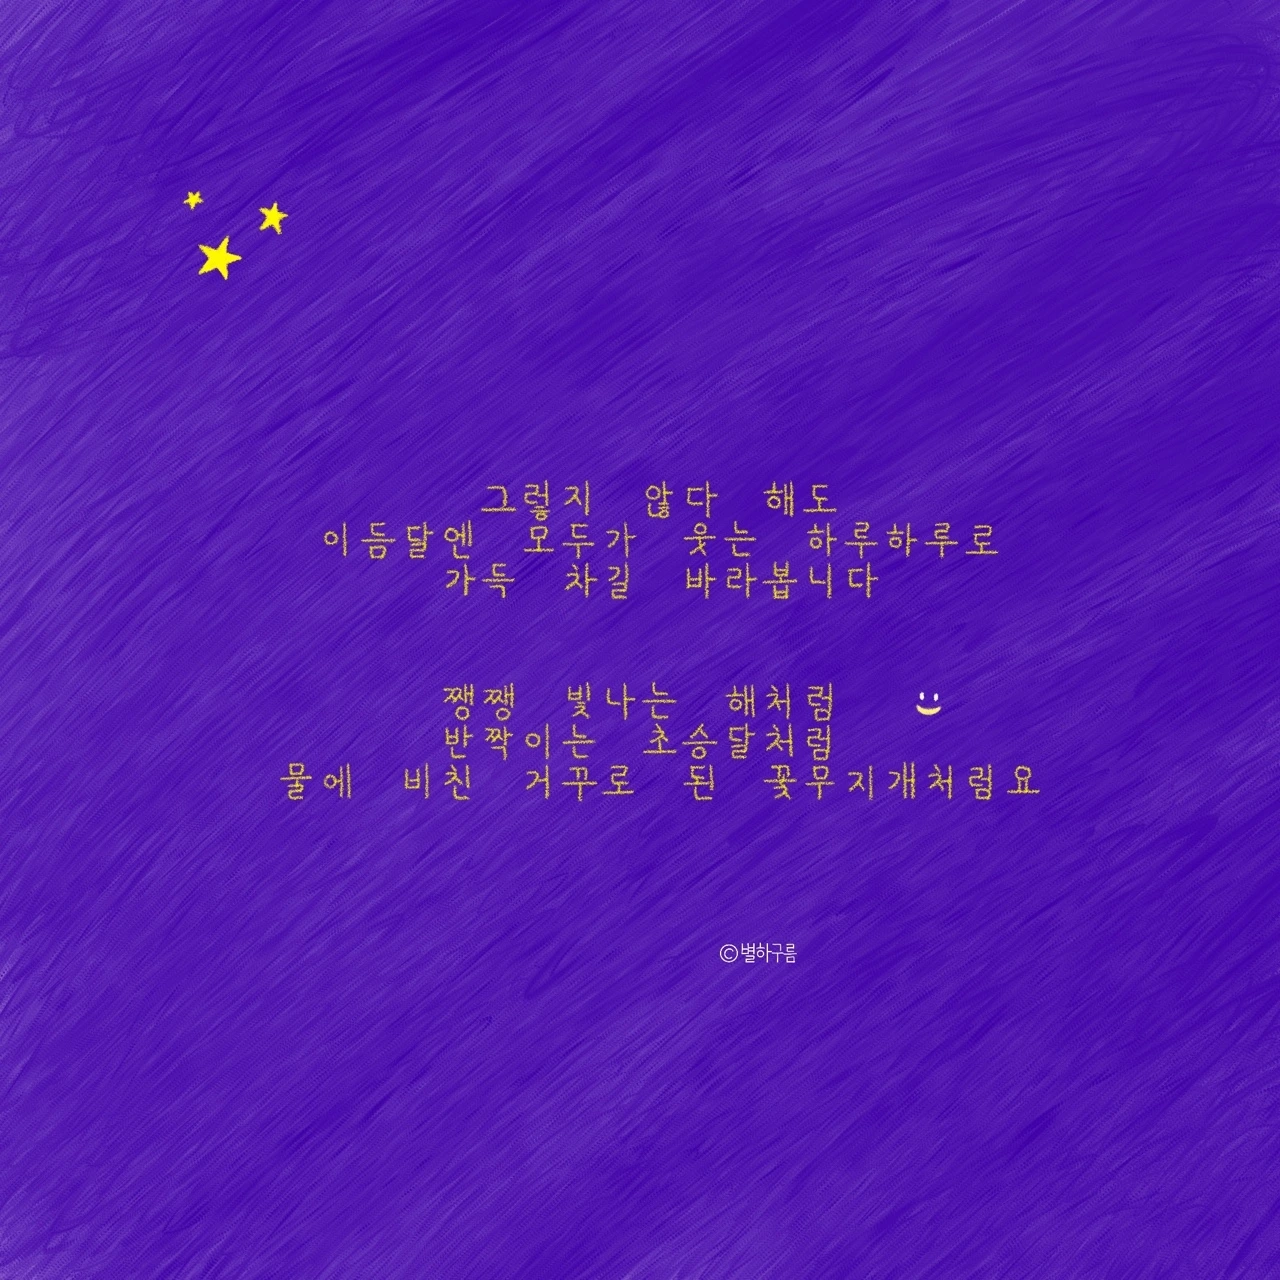 그렇지 않다 해도
이듬달엔 모두가 웃는 하루하루로
가득 차길 바라봅니다
쨍쨍 빛나는 해처럼
반짝이는 초승달처럼
물에 비친 거꾸로 된 꽃무지개처럼요
©별하구름